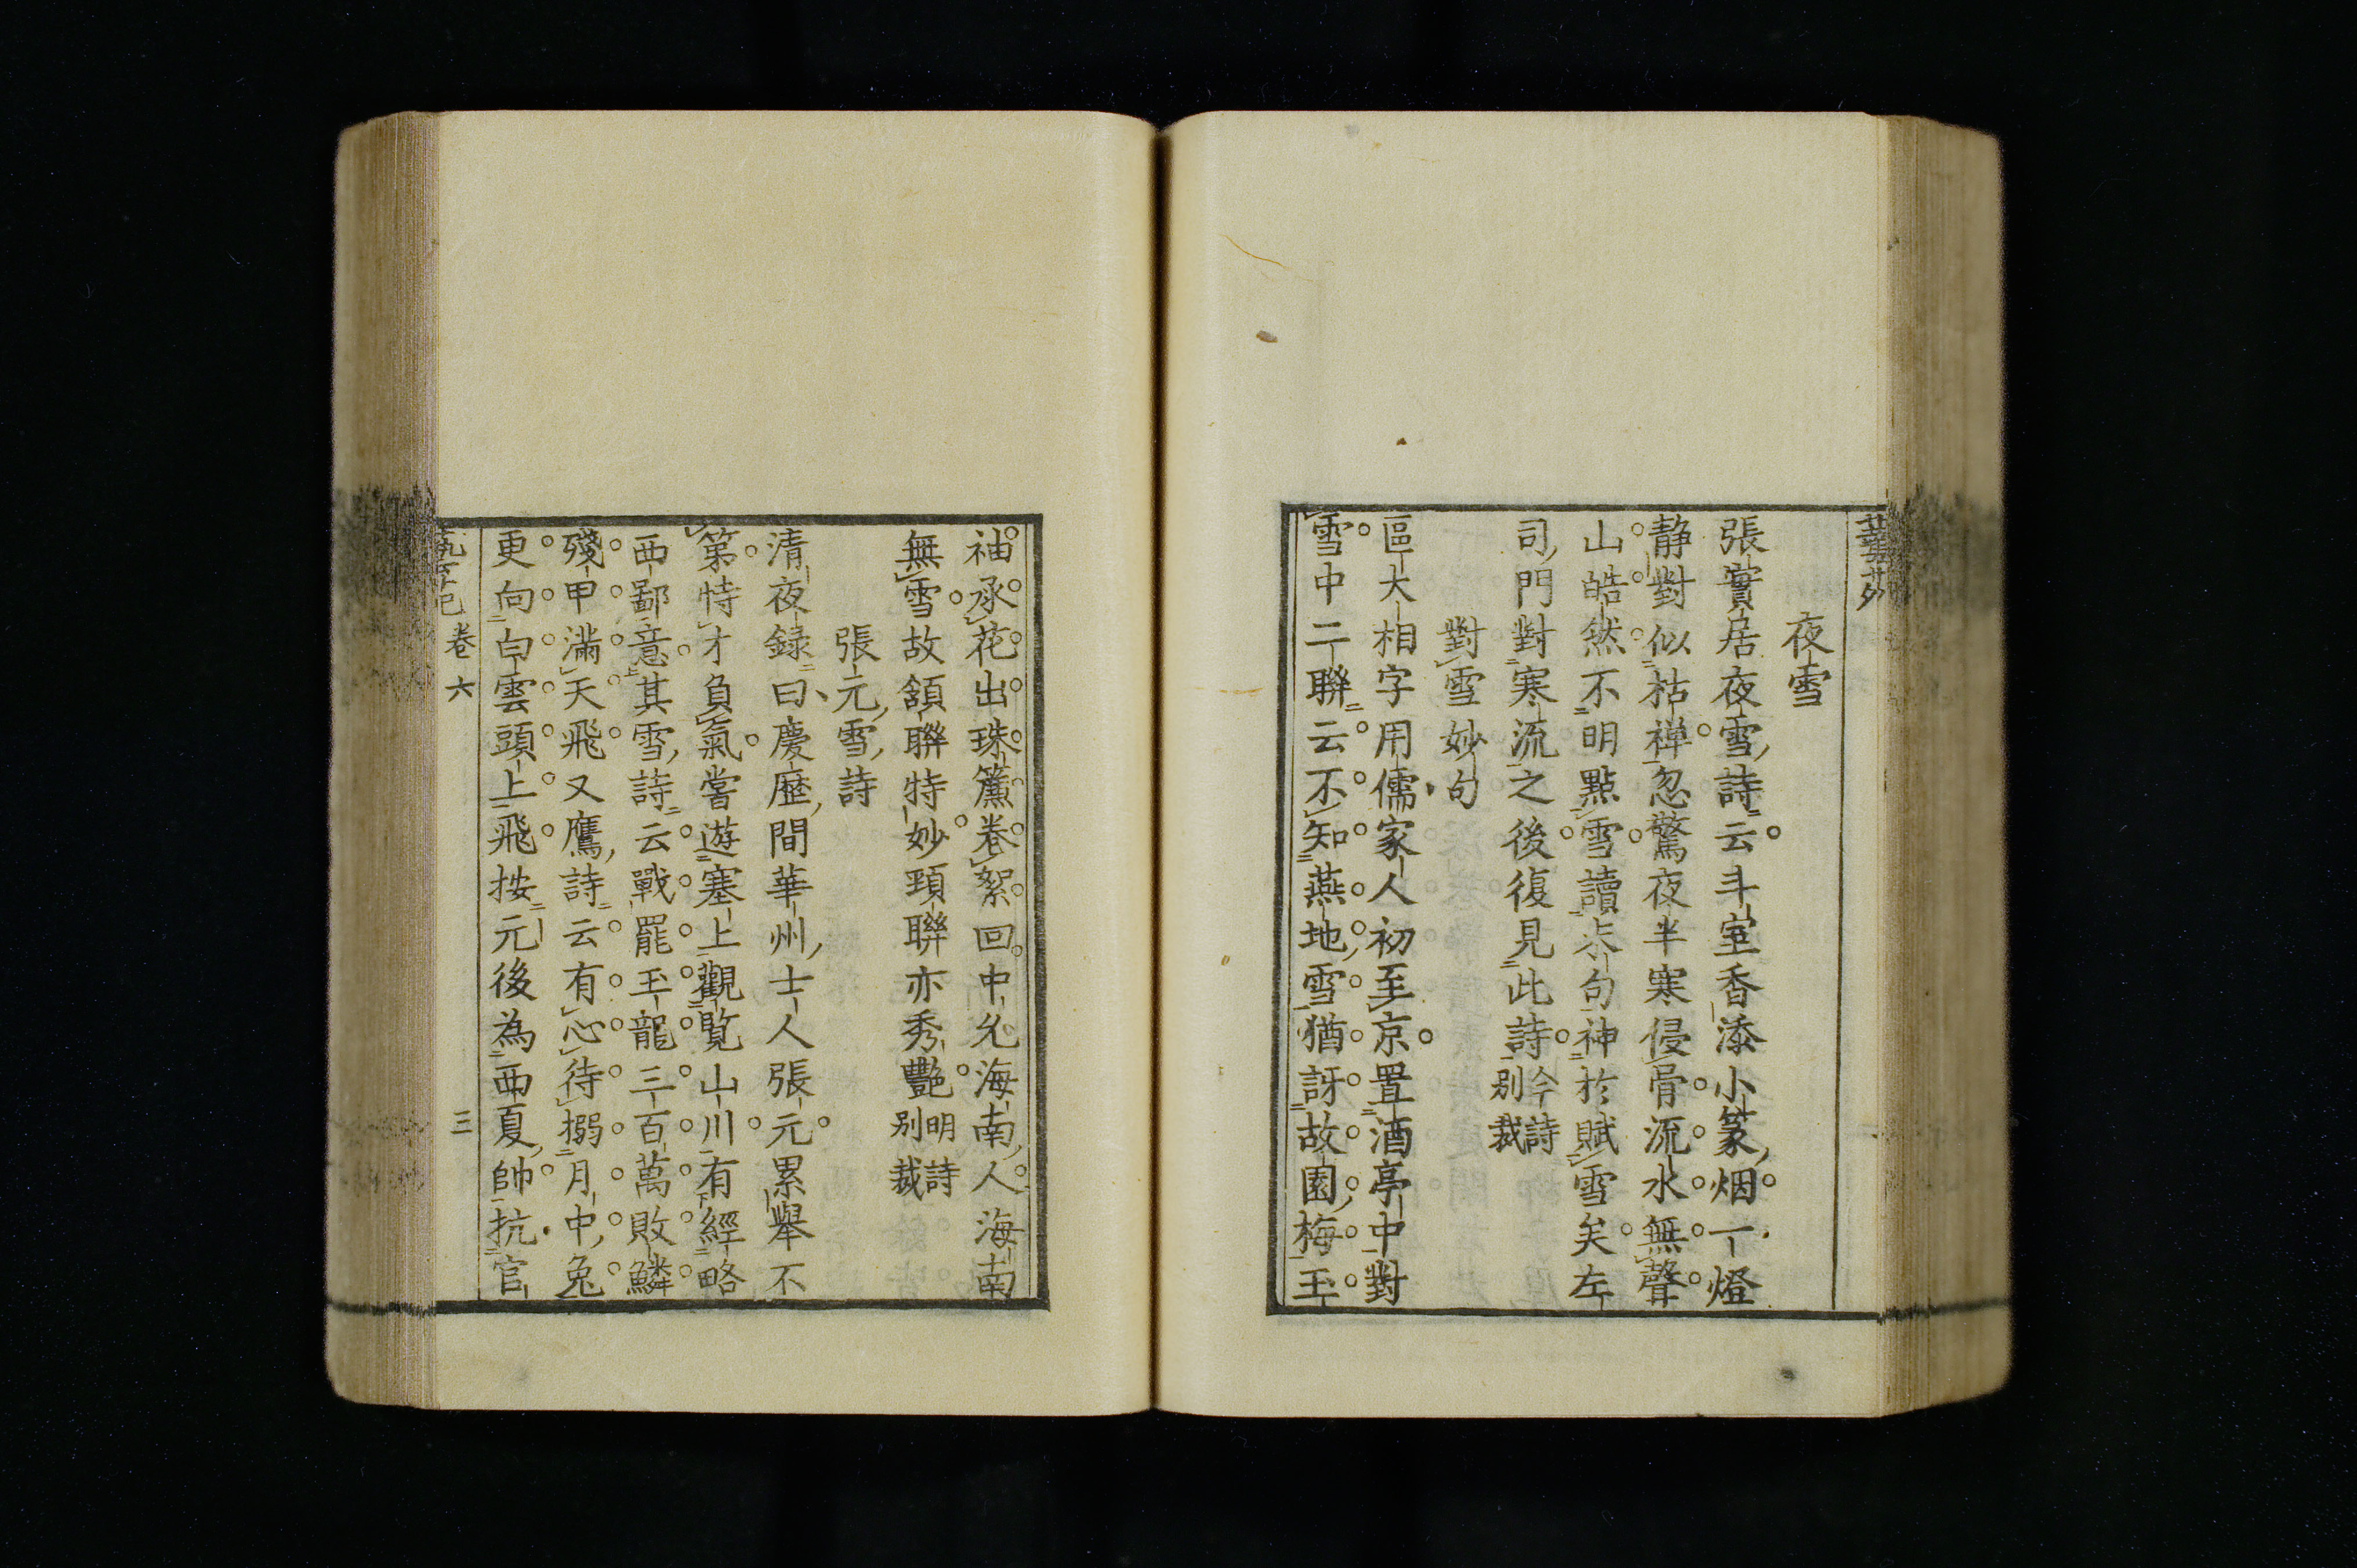 夜雪
張實居夜雪詩云斗室香添小篆烟一燈
静對似枯禅忽驚夜半寒侵骨流水無聲
山皓然不明點雪讀末句神於賦雪矣左
司門對寒流之後復見此詩今詩別裁
對雪妙句
區大相字用儒家人初至京置酒亭中對
雪中二聯云不知燕地雪猶訝故園梅玉
袖承花出珠簾卷絮回中允海南人海南
無雪故頷聯特妙頸聯亦秀艷明詩別裁
張元雪詩
清夜録曰慶歷間華州士人張元累舉不
第恃才負氣嘗遊塞上觀覧山川有經略
西鄙意其雪詩云戰罷玉龍三百萬敗鱗
殘甲滿天飛又鷹詩云有心待搦月中兔
更向白雲頭上飛按元後為西夏帥抗官
卷六
三